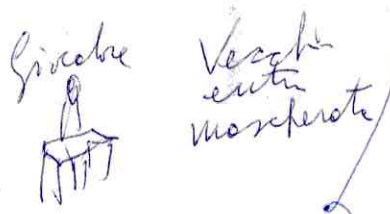 Giocatore
Vecchia
entra
mascherata